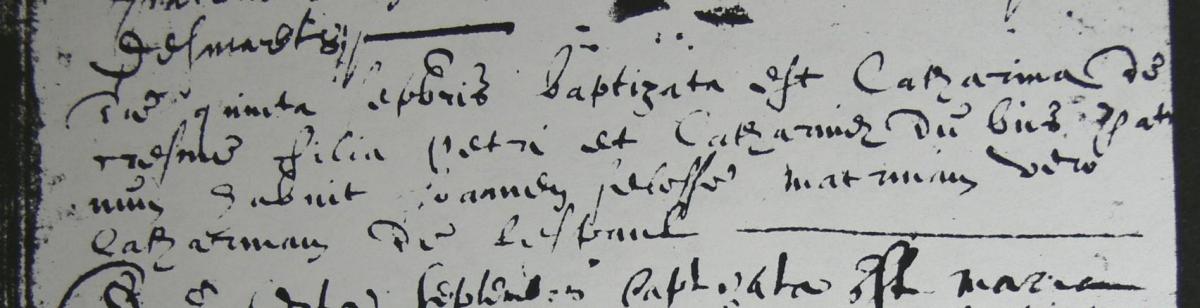 Desmarets
Die quinta sepbris baptizata est Catharina De
cresme filia Petri et Catharinæ Du bus Pat
num habuit Joannem matrinam vero
Catharinam De Lespaul
septembris baptizata est maria